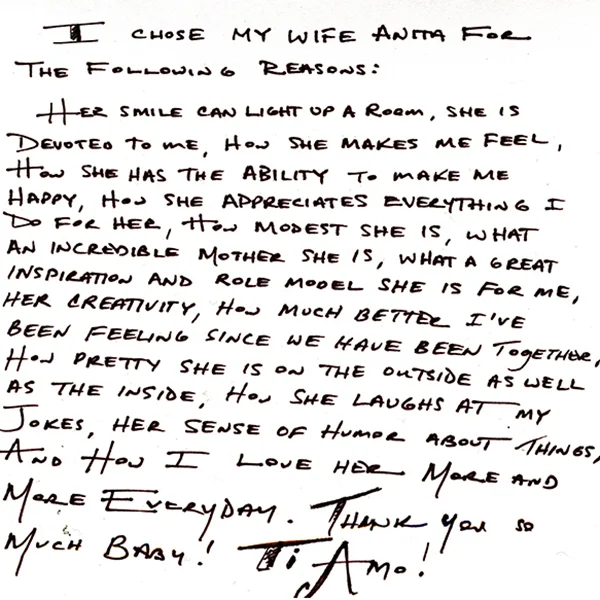 I CHOSE MY WIFE ANITA FOR
THE FOLLOWING REASONS:
HER SMILE CAN LIGHT UP A ROOM, SHE IS
DEVOTED TO ME, HOW SHE MAKES ME FEEL,
HOW SHE HAS THE ABILITY TO MAKE ME
HAPPY, HOW SHE APPRECIATES EVERYTHING I
DO FOR HER, HOW MODEST SHE IS, WHAT
AN INCREDIBLE MOTHER SHE IS, WHAT A GREAT
INSPIRATION AND ROLE MODEL SHE IS FOR ME,
HER CREATIVITY, HOW MUCH BETTER I'VE
BEEN FEELING SINCE WE HAVE BEEN TOGETHER,
HOW PRETTY SHE IS ON THE OUTSIDE AS WELL
AS THE INSIDE, HOW SHE LAUGHS AT MY
JOKES, HER SENSE OF HUMOR ABOUT THINGS,
AND HOW I LOVE HER MORE AND
MORE EVERYDAY. THANK YOU SO
MUCH BABY! Ti AMO!